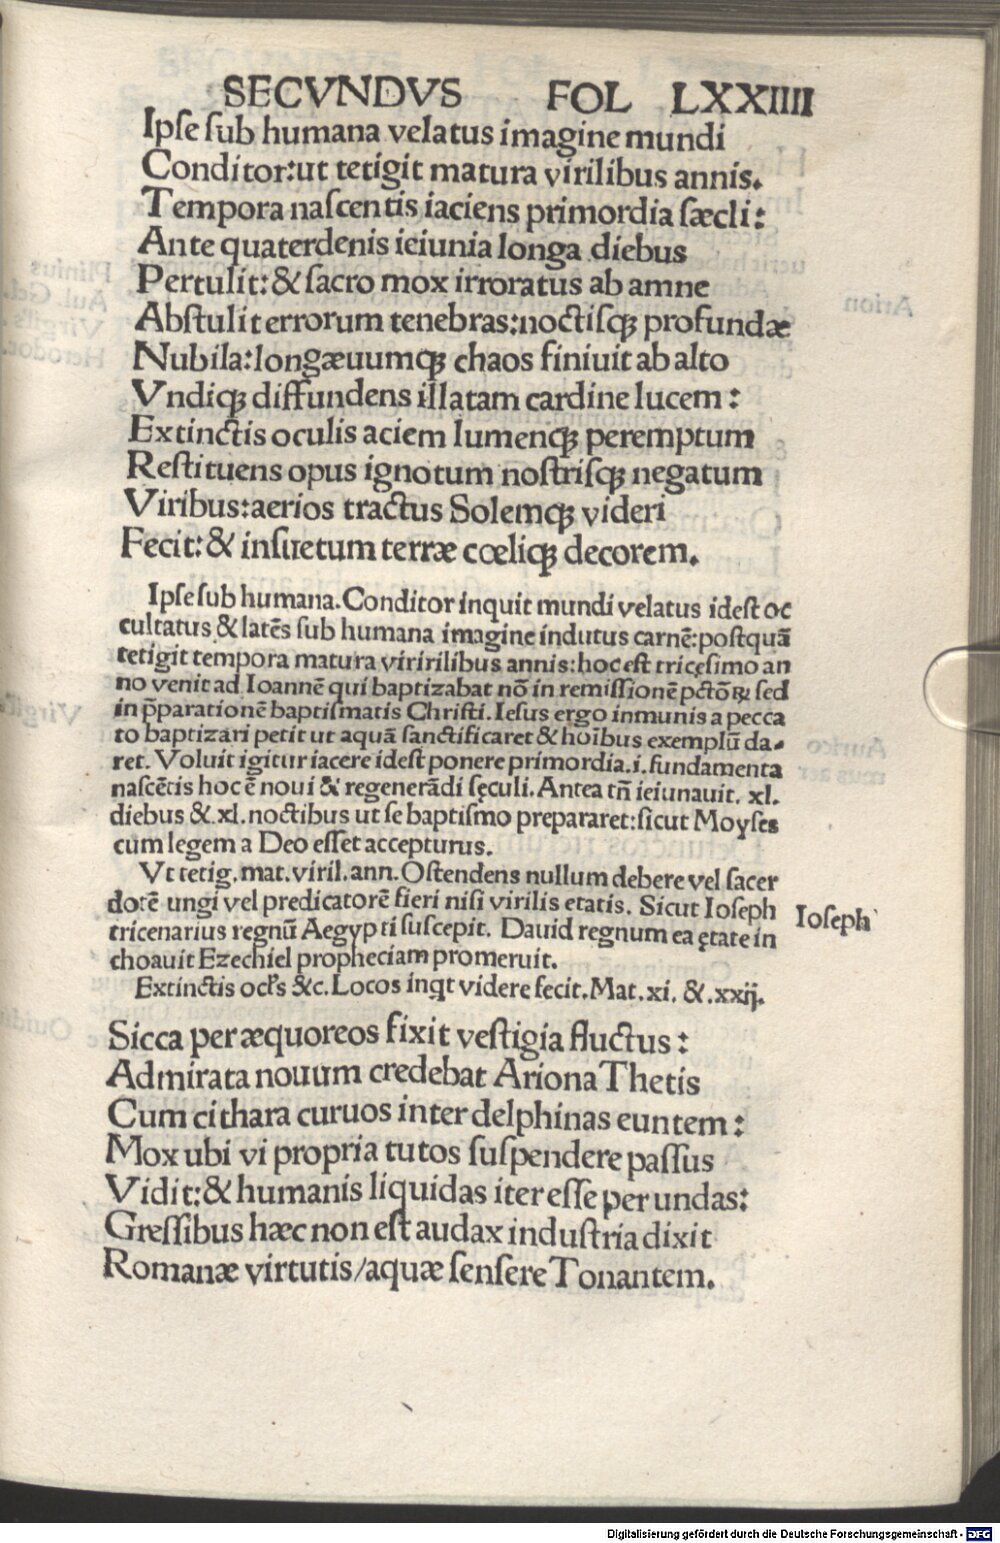 SECVNDVS FOL LXXIIII
Ipse sub humana velatus imagine mundi
Conditor:ut tetigit matura virilibus annis.
Tempora nascentis iaciens primordia sæcli:
Ante quaterdenis ieiunia longa diebus
Pertulit:& sacro mox irroratus ab amne
Abstulit errorum tenebras:noctisqꝫ profundæ
Nubila:longæuumqꝫ chaos finiuit ab alto
Vndiqꝫ diffundens illatam cardine lucem:
Extinctis oculis aciem lumenqꝫ peremptum
Restituens opus ignotum nostrisqꝫ negatum
Viribus:aerios tractus Solemqꝫ videri
Fecit:& insuetum terræ cœliqꝫ decorem.
Ipse sub humana. Conditor inquit mundi velatus idest oc
cultatus & latēs sub humana imagine indutus carnē:postquā
tetigit tempora matura viririlibus annis:hoc est tricęsimo an
no venit ad Ioannē qui baptizabat nō in remissionē pctōꝝ sed
in p̄parationē baptismatis Christi. Iesus ergo inmunis a pecca
to baptizari petit ut aquā sanctificaret & hoībus exemplū da-
ret. Voluit igitur iacere idest ponere primordia.i.fundamenta
nascētis hoc ē noui & regenerādi sęculi. Antea tn̄ ieiunauit. xl.
diebus &.xl.noctibus ut se baptismo prepararet:sicut Moyses
cum legem a Deo esset accepturus.
Vt tetig.mat.viril.ann.Ostendens nullum debere vel sacer
dotē ungi vel predicatorē fieri nisi virilis etatis. Sicut Ioseph
tricenarius regnū Aegypti suscepit. Dauid regnum ea ętate in
choauit Ezechiel propheciam promeruit.
Ioseph
Extinctis ocl's &c.Locos inqt videre fecit.Mat.xi. &.xxij.
Sicca per æquoreos fixit vestigia fluctus:
Admirata nouum credebat Ariona Thetis
Cum cithara curuos inter delphinas euntem:
Mox ubi vi propria tutos suspendere passus
Vidit:& humanis liquidas iter esse per undas:
Gressibus hæc non est audax industria dixit
Romanæ virtutis/aquæ sensere Tonantem.
Digitalisierung gefördert durch die Deutsche Forschungsgemeinschaft - DFG